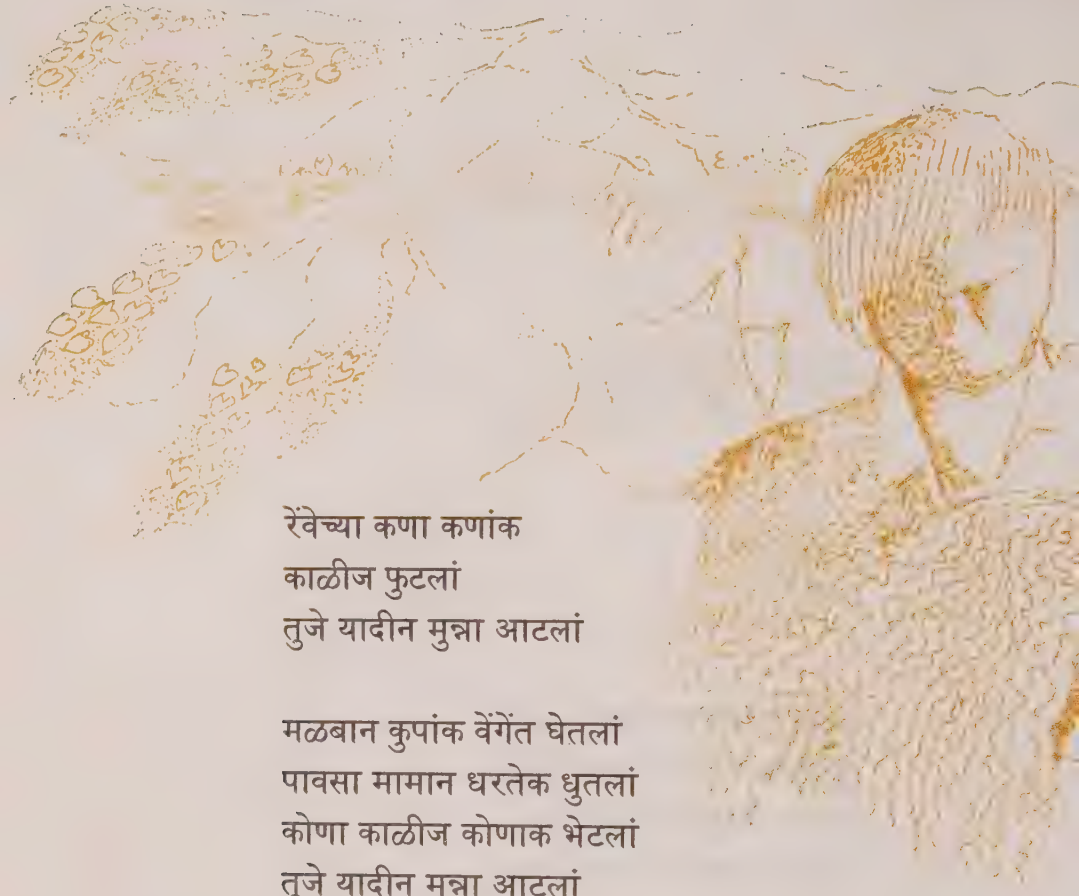 रेंवेच्या कणा कणांक
काळीज फुटलां
तुजे यादीन मुन्ना आटलां
मळबान कुपांक वेंगेंत घेतलां
पावसा मामान धरतेक धुतलां
कोणा काळीज कोणाक भेटलां
तुजे यादीन मुन्ना आटलां